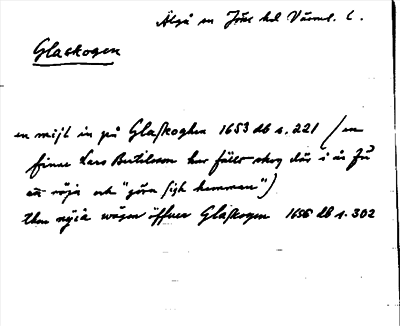 Älgå sn Jösse hd Värml. l.
Glaskogen
en mijl in på Glaßkoghen 1653 db s. 221 (en
finne Lars Bertilsson har fält skog där i år
att röja och "göra sigh hemman")
then nyia wägen öffuer Glaßkogen 1656 db s. 302